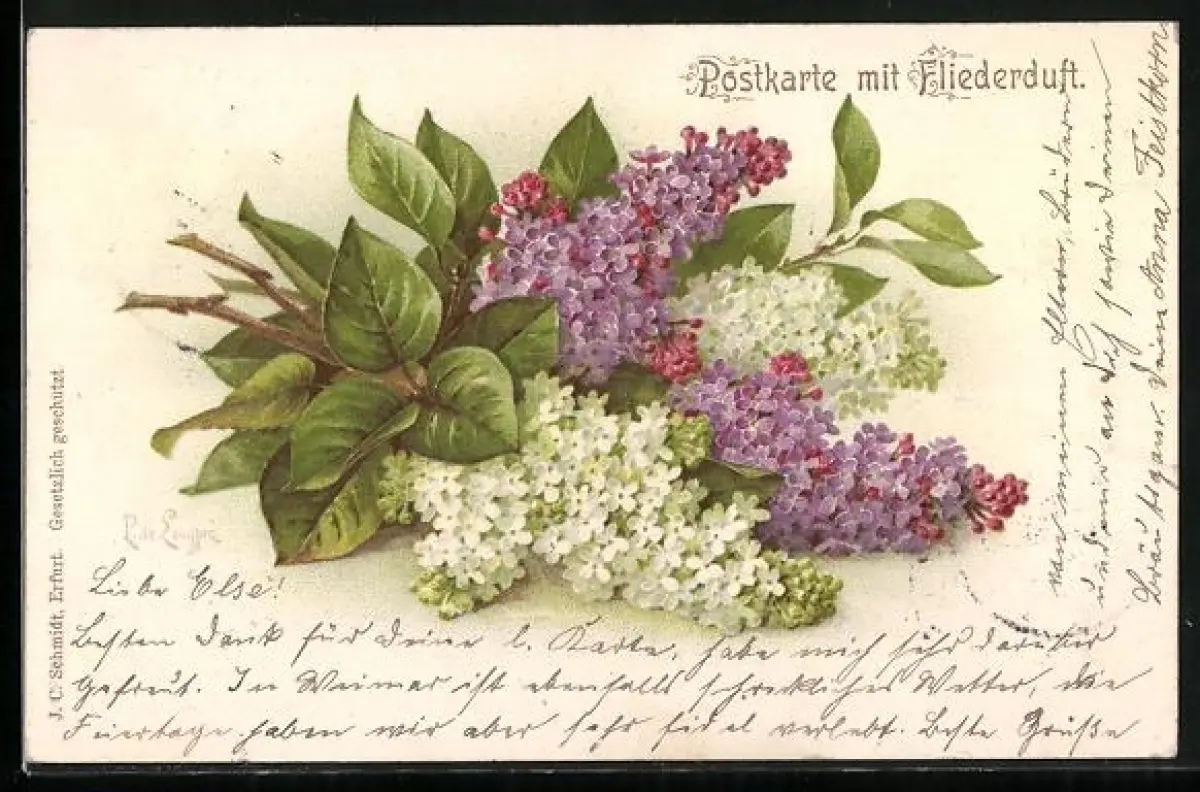 Postkarte mit Fliederduft.
J. C. Schmidt, Erfurt. Gesetzlich geschützt
Liebe Else!
Besten Dank für Deine l. Karte, habe mich sehr darüber
gefreut. In Weimar ist ebenfalls schreckliches Wetter, die
Feiertage haben wir aber sehr fidel verlebt. Beste Grüße
von meinen Eltern, Brüdern
und mir an Dich sowie Deinen
Bräutigam. Deine Anna Feistkorn